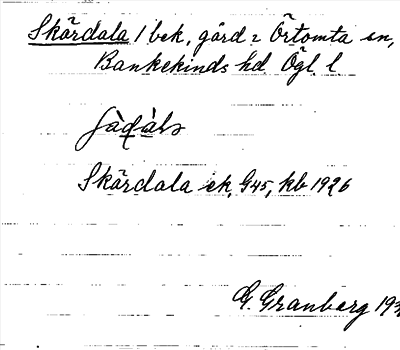 Skärdala / bek. gård i Örtomta sn,
Bankekinds hd Ögl. l.
Skärdala ek, G45, kb 1926
G. Granberg 193